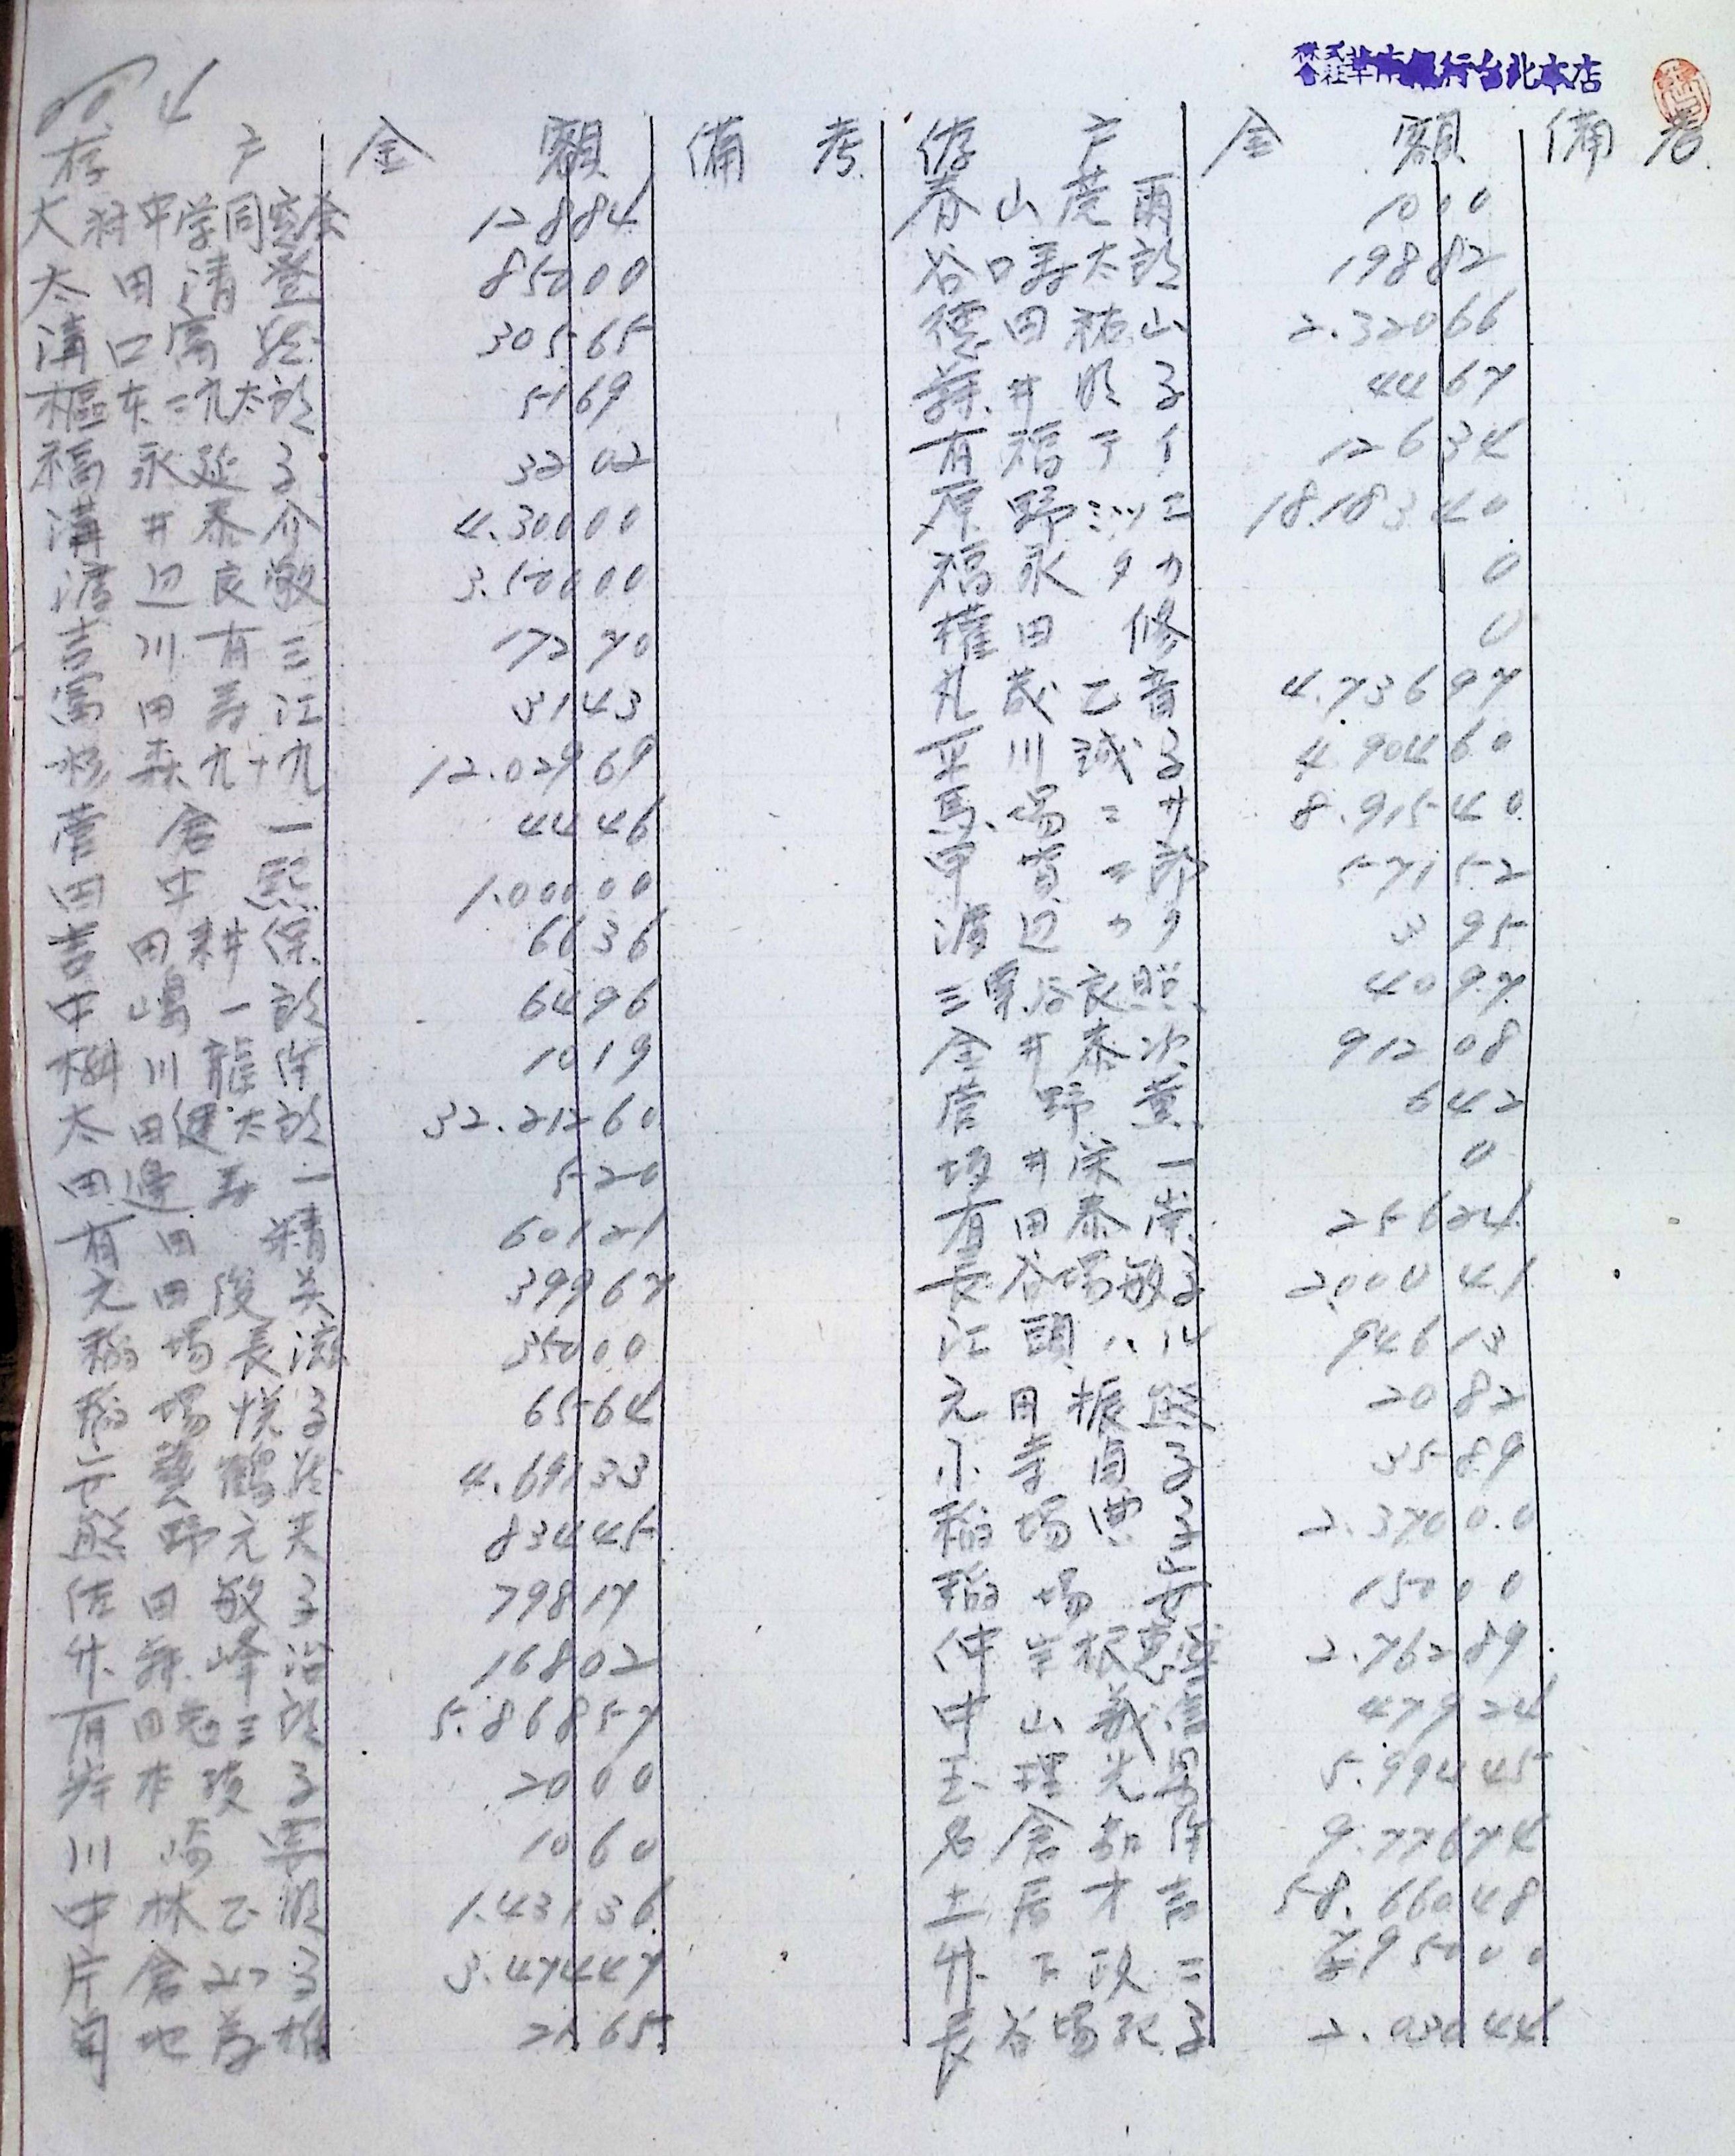 株式会社華南銀行台北本店
存 戶 金 額 備 考
大村中学同窓会 12884
太田清登 85000
溝口富 30565
東二九太郎 5169
福永延子 3202
溝井泰介 4.30000
渡辺良敬 3.50000
吉川有三 17270
富田寿江 3143
杉森九十九 12.02969
菅倉一 4446
田中熙 1.00000
吉田耕保 6636
中嶋一郎 6496
川龍 1019
太田健太郎 32.21260
田邊寿一 520
有田精 60121
元田俊英 39967
稲場長滋 35000
稲場悦子 6564
安藝鶴 4.69133
熊野元夫 83445
佐田敏子 79817
升森峰治 16802
有田志三郎 5.86857
井本陵子 2000
川崎 1060
中林正明 1.43136
片倉フ子 3.47447
菊地為雄 2165
存 戶 金 額 備 考
春山茂爾 1000
谷口寿太郎 19882
徳田祐山 2.32066
藤井明子 4467
有福テイ 12634
原野ミツエ 18.18340
福永タカ 0
權田修 0
札茂乙音 4.73697
平川誠子 4.90460
馬場ニサ 8.91540
甲賀三郎 57152
渡辺カク 395
三栗谷良照 4097
金井泰次 91208
菅野薫 642
坂井栄一 0
有田泰 25624
長谷場敏子 2.00041
江頭ハル 94613
元田振熊 2082
小寺貞子 3589
稲場典子 2.37000
稲場安 15000
仲宗根恵 2.76289
中山義信 47924
玉理光 5.99445
名倉和 9.77674
土居才吉 58.66048
升下政二 795000
長谷場記子 2.03044